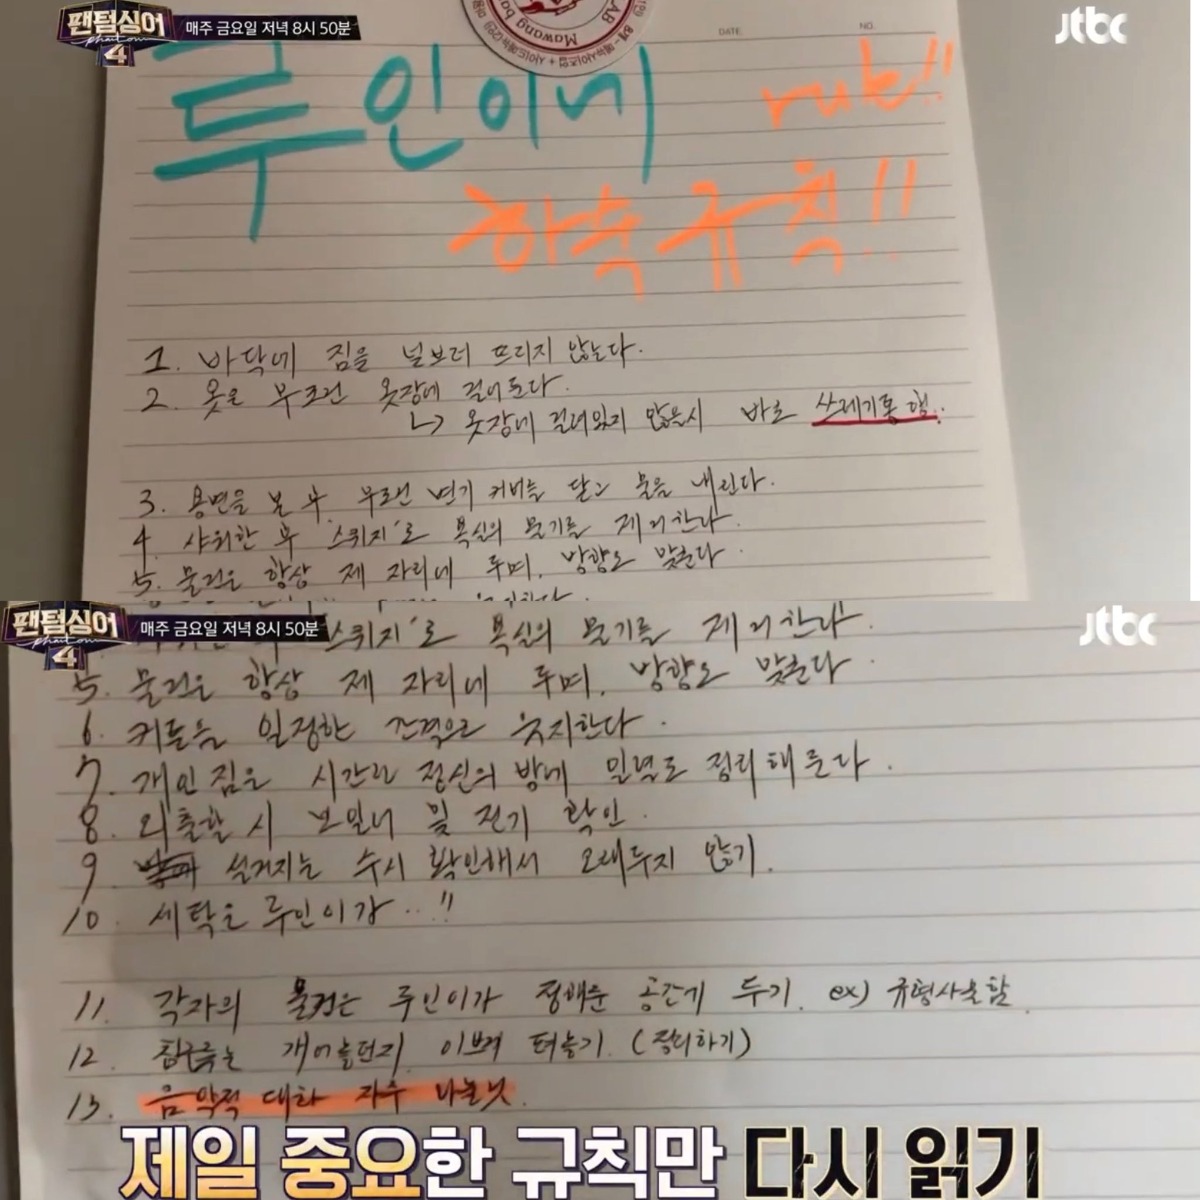 팬텀싱어
4
매주 금요일 저녁 8시 50분
jtbc
Mawang
DATE
NO.
루인이네 rule!!
하숙 규칙!!
1. 바닥에 짐을 널브러 뜨리지 않는다.
2. 옷은 무조건 옷장에 걸어둔다.
↳ 옷장에 걸려있지 않을시 바로 쓰레기통 행.
3. 용변을 본 후 무조건 변기 커버를 닫고 물을 내린다.
4. 샤워한 후 '스퀴지'로 욕실의 물기를 제거한다.
5. 물건은 항상 제 자리에 두며, 방향도 맞춘다.
팬텀싱어
4
매주 금요일 저녁 8시 50분
jtbc
스퀴지'로 욕실의 물기를 제거한다.
5. 물건은 항상 제 자리에 두며, 방향도 맞춘다.
6. 커튼을 일정한 간격으로 유지한다.
7. 개인 짐은 시간과 정신의 방에 일렬로 정리해둔다.
8. 외출할 시 보일러 및 전기 확인.
9. 설거지는 수시 확인해서 오래두지 않기.
10. 세탁은 루인이가..!!
11. 각자의 물건은 루인이가 정해준 공간에 두기. ex) 규형사물함
12. 침구류는 개어놓던지 이쁘게 펴놓기. (정리하기)
13. 음악적 대화 자주 나눌것.
제일 중요한 규칙만 다시 읽기